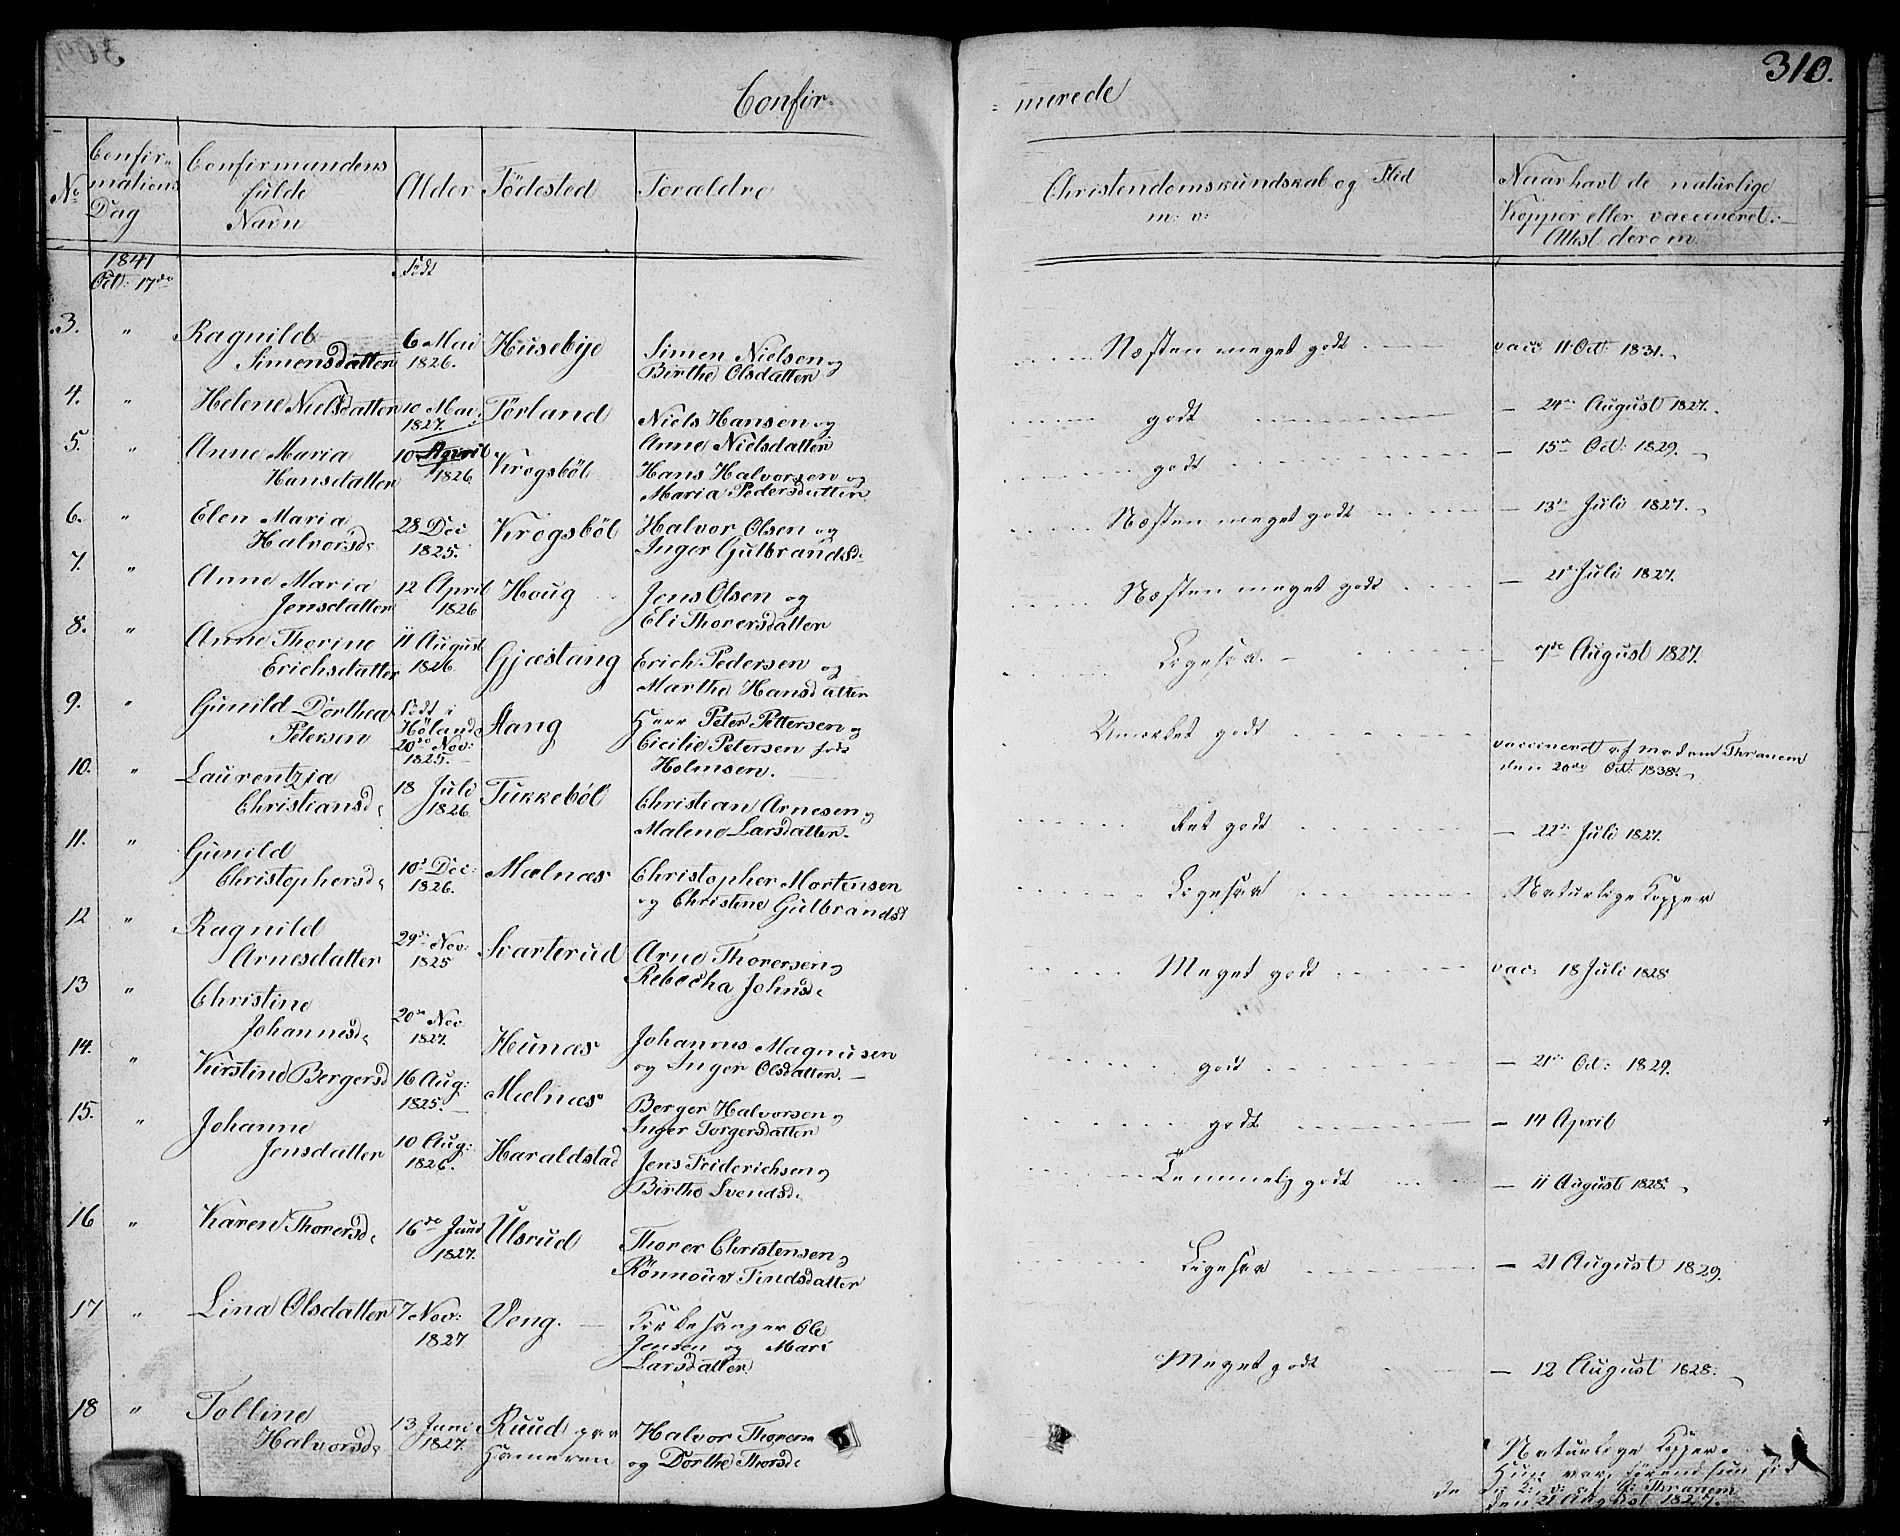 310.
Confir-
merede
No
Confir-
mations
Dag
Confirmandens
fulde
Navn
Alder
Födested
Forældre
Christendomskundskab og Flid
m: v:
Naar havt de naturlige
Kopper eller vaccineret.
Attest derom
1841
Oct: 17de
Födt
3. " Ragnild
Simensdatter
6 Mai
1826.
Husebÿe
Simen Nielsen og
Birthe Olsdatter
Næsten meget godt
vacc 11 Oct: 1831.
4. " Helene Nielsdatter
10 Mai
1827.
Törland
Niels Hansen og
Anne Nielsdatter
godt
— 24de August 1827.
5. " Anne Maria
Hansdatter
10 April
1826
Krogsböl
Hans Halvorsen og
Maria Pedersdatter
godt
— 15de Oct: 1829.
6. " Elen Maria
Halvorsd:
28 Dec
1825.
Krogsböl
Halvor Olsen og
Inger Gulbrandsd:
Næsten meget godt
— 13de Juli 1827.
7. " Anne Maria
Jensdatter
12 April
1826
Houg
Jens Olsen og
Eli Thorersdatter
Næsten meget godt
— 21de Juli 1827.
8. " Anne Thorine
Erichsdatter
11 August
1826
Gjæstang
Erich Pedersen og
Marthe Hansdatter
Ligesaa
— 7de August 1827.
9. " Gunild Dorthea
Petersen
Födt i
Höland
20de Nov:
1825.
Aang
Herr Peter Pettersen og
Cicilie Petersen födt
Holmsen.
Udmerket godt
vaccineret af madam Thranem
den 20de Oct: 1838.
10. " Laurentzia
Christiansd:
18 Juli
1826
Tukkeböl
Christian Arnesen og
Malene Larsdatter.
Ret godt
— 22de Juli 1827.
11. " Gunild
Christophersd:
10de Dec:
1826.
Mælnæs
Christopher Mortensen
og Christine Gulbrandsd
Ligesaa
Naturlige Kopper
12 " Ragnild
Arnesdatter
29de Nov:
1825
Svarterud
Arne Thoresen og
Rebecha Johnsd:
Meget godt
vac: 18 Juli 1828
13 " Christine
Johannesd:
20de Nov.
1827.
Hunæs
Johannes Magnusen
og Inger Olsdatter.
godt
— 21de Oct: 1829.
14. " Kirstine Bergersd
16 Aug:
1825.
Mælnæs
Berger Halvorsen og
Inger Torgersdatter
godt
— 14 April
15. " Johanne
Jensdatter
10 Aug:
1826.
Haraldstad
Jens Friderichsen og
Birthe Svendsd:
Temmelig godt
— 11 August 1828.
16 " Karen Thorersd:
16de Juni
1827.
Ulsrud
Thorer Christensen og
Rönnouv Findsdatter
Ligesaa
— 21 August 1829.
17 " Lina Olsdatter
7 Nov:
1827
Veng.
Kirkesanger Ole
Jensen og Mari
Larsdatter
Meget godt
— 12 August 1828.
18 " Tolline
Halvorsd:
13 Juni
1827.
Ruud paa
Hammeren
Halvor Thoresen
og Dorthe Thorsd:
Naturlige Kopper.
Hun var
af G: Thranem
den 21 August 1827.